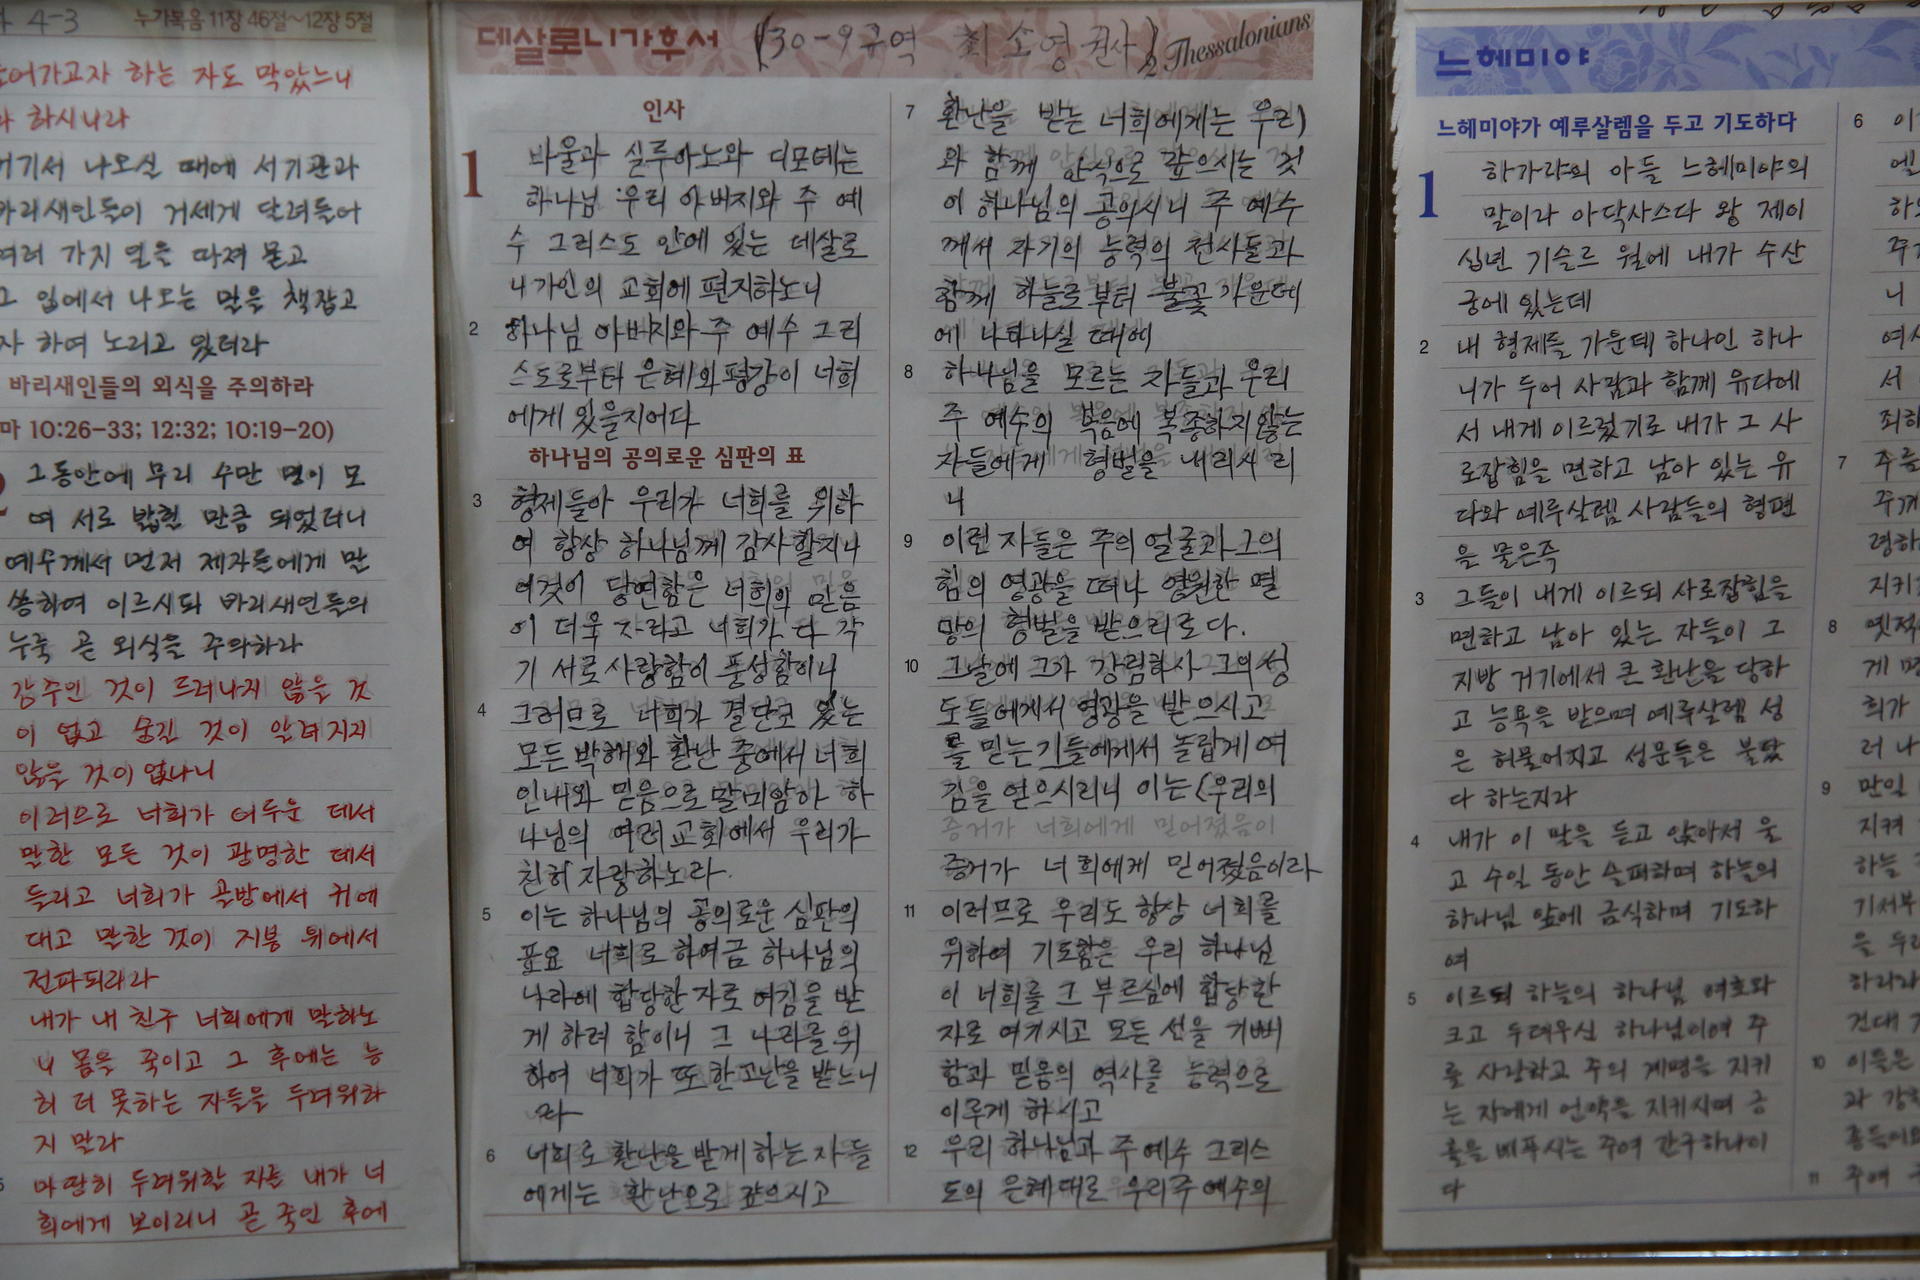 4-3 누가복음 11장 46절~12장 5절
들어가고자 하는 자도 막았느니
라 하시니라
거기서 나오실 때에 서기관과
바리새인들이 거세게 달려들어
여러 가지 일을 따져 묻고
그 입에서 나오는 말을 책잡고
자 하여 노리고 있더라
바리새인들의 외식을 주의하라
(마 10:26-33; 12:32; 10:19-20)
그동안에 무리 수만 명이 모
여 서로 밟힐 만큼 되었더니
예수께서 먼저 제자들에게 말
씀하여 이르시되 바리새인들의
누룩 곧 외식을 주의하라
감추인 것이 드러나지 않을 것
이 없고 숨긴 것이 알려지지
않을 것이 없나니
이러므로 너희가 어두운 데서
말한 모든 것이 광명한 데서
들리고 너희가 골방에서 귀에
대고 말한 것이 지붕 위에서
전파되리라
내가 내 친구 너희에게 말하노
니 몸을 죽이고 그 후에는 능
히 더 못하는 자들을 두려워하
지 말라
마땅히 두려워할 자를 내가 너
희에게 보이리니 곧 죽인 후에
데살로니가후서 (30-9구역 최소영권사) 2 Thessalonians
인사
1 바울과 실루아노와 디모데는
하나님 우리 아버지와 주 예
수 그리스도 안에 있는 데살로
니가인의 교회에 편지하노니
2 하나님 아버지와 주 예수 그리
스도로부터 은혜와 평강이 너희
에게 있을지어다
하나님의 공의로운 심판의 표
3 형제들아 우리가 너희를 위하
여 항상 하나님께 감사할지니
이것이 당연함은 너희의 믿음
이 더욱 자라고 너희가 다 각
기 서로 사랑함이 풍성함이니
4 그러므로 너희가 견디고 있는
모든 박해와 환난 중에서 너희
인내와 믿음으로 말미암아 하
나님의 여러 교회에서 우리가
친히 자랑하노라.
5 이는 하나님의 공의로운 심판의
표요 너희로 하여금 하나님의
나라에 합당한 자로 여김을 받
게 하려 함이니 그 나라를 위
하여 너희가 또한 고난을 받느니
라
6 너희로 환난을 받게 하는 자들
에게는 환난으로 갚으시고
7 환난을 받는 너희에게는 우리
와 함께 안식으로 갚으시는 것
이 하나님의 공의시니 주 예수
께서 자기의 능력의 천사들과
함께 하늘로부터 불꽃 가운데
에 나타나실 때에
8 하나님을 모르는 자들과 우리
주 예수의 복음에 복종하지 않는
자들에게 형벌을 내리시리
니
9 이런 자들은 주의 얼굴과 그의
힘의 영광을 떠나 영원한 멸
망의 형벌을 받으리로다.
10 그날에 그가 강림하사 그의 성
도들에게서 영광을 받으시고
믿는 기들에게서 놀랍게 여
김을 얻으시리니 이는 (우리의
증거가 너희에게 믿어졌음이
증거가 너희에게 믿어졌음이라
11 이러므로 우리도 항상 너희를
위하여 기도함은 우리 하나님
이 너희를 그 부르심에 합당한
자로 여기시고 모든 선을 기뻐
함과 믿음의 역사를 능력으로
이루게 하시고
12 우리 하나님과 주 예수 그리스
도의 은혜대로 우리 주 예수의
느헤미야
느헤미야가 예루살렘을 두고 기도하다
1 하가랴의 아들 느헤미야의
말이라 아닥사스다 왕 제이
십년 기슬르 월에 내가 수산
궁에 있는데
2 내 형제들 가운데 하나인 하나
니가 두어 사람과 함께 유다에
서 내게 이르렀기로 내가 그 사
로잡힘을 면하고 남아 있는 유
다와 예루살렘 사람들의 형편
을 물은즉
3 그들이 내게 이르되 사로잡힘을
면하고 남아 있는 자들이 그
지방 거기에서 큰 환난을 당하
고 능욕을 받으며 예루살렘 성
은 허물어지고 성문들은 불탔
다 하는지라
4 내가 이 말을 듣고 앉아서 울
고 수일 동안 슬퍼하며 하늘의
하나님 앞에 금식하며 기도하
여
5 이르되 하늘의 하나님 여호와
크고 두려우신 하나님이여 주
를 사랑하고 주의 계명을 지키
는 자에게 언약을 지키시며 긍
휼을 베푸시는 주여 간구하나이
다
6
7 주를
주께
령하
지키
8 옛적
게 명
희가
러 나
9 만일
지켜
하늘
기서부
을 두
하리라
건대
10 이들은
과 강
종들이
11 주여